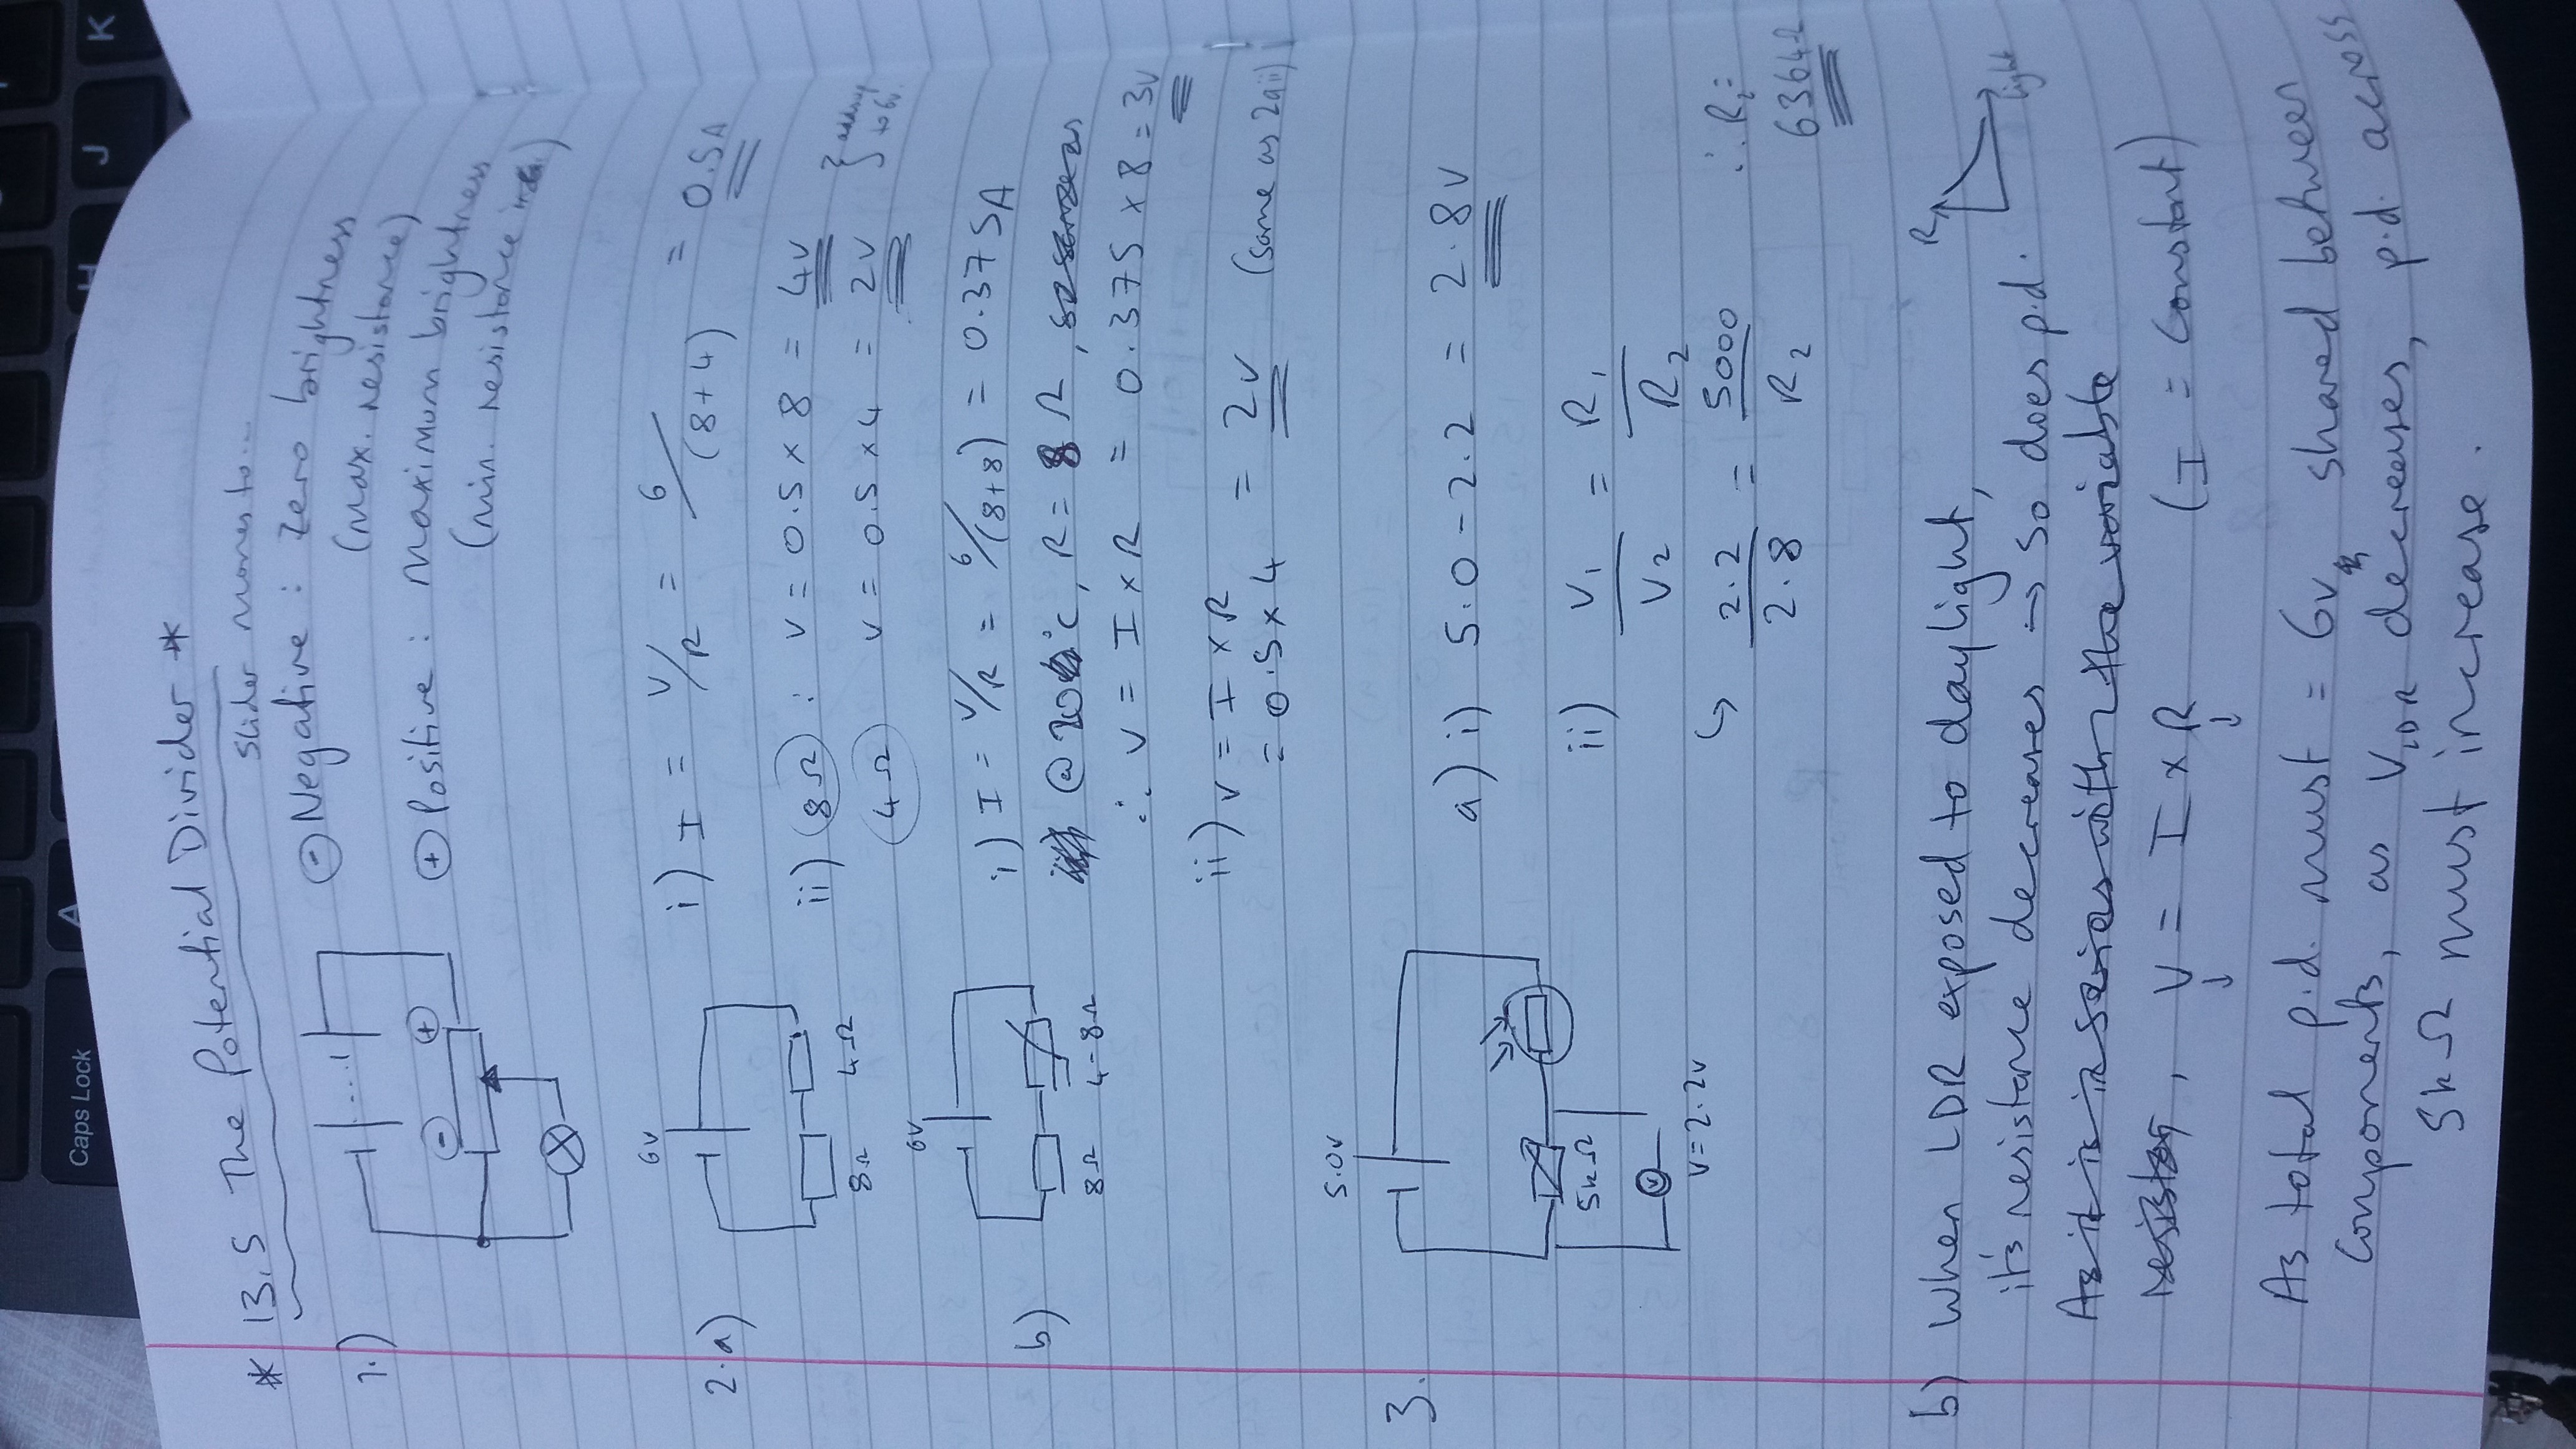 * 13.5 The Potential Divider *
slider moves to...
1.) ⊖ Negative : zero brightness
(max. resistance)
⊕ Positive : maximum brightness
(min. resistance)
- +
2.a) 6V
8Ω 4Ω
i) I = V/R = 6/(8+4) = 0.5A
ii) 8Ω : V = 0.5 x 8 = 4V
4Ω V = 0.5 x 4 = 2V } adds up to 6v.
b) 6V
8Ω 4-8Ω
i) I = V/R = 6/(8+8) = 0.375A
@ 20°C, R = 8 Ω,
∴ V = I x R = 0.375 x 8 = 3V
ii) V = I x R
= 0.5 x 4 = 2V (same as 2aii)
3. 5.0V
5kΩ
V
V = 2.2V
a) i) 5.0 - 2.2 = 2.8V
ii) V₁/V₂ = R₁/R₂
↳ 2.2/2.8 = 5000/R₂ ∴ R₂ = 6364Ω
b) When LDR exposed to daylight,
it's resistance decreases → so does p.d.
R light
As it is in series with the variable
resistor, V = I x R (I = constant)
↓ ↓
As total p.d. must = 6V shared between
components, as V LDR decreases, p.d. across
5kΩ must increase.
Caps Lock
A
H
J
K